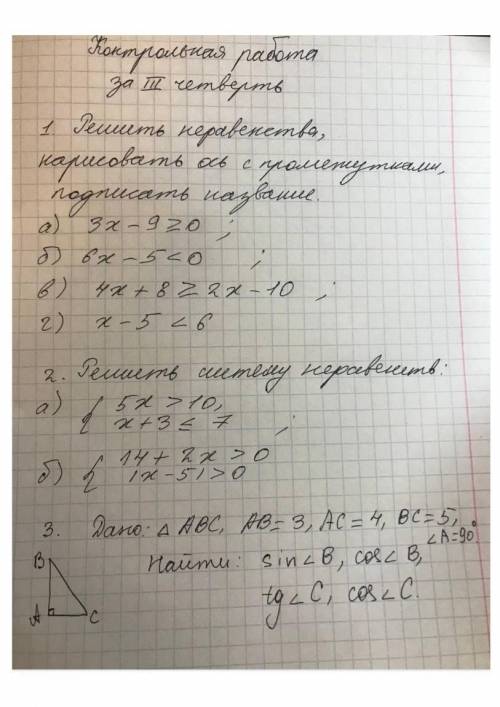 Контрольная работа
за III четверть
1. Решить неравенства,
нарисовать ось с промежутками,
подписать название.
а) 3x - 9 ≥ 0 ;
б) 6x - 5 < 0 ;
в) 4x + 8 ≥ 2x - 10 ;
г) x - 5 < 6
2. Решить систему неравенств:
а) { 5x > 10,
x + 3 ≤ 7 ;
б) { 14 + 2x > 0
|x - 5| > 0
3. Дано: △ ABC, AB = 3, AC = 4, BC = 5,
∠A = 90°
Найти: sin∠B, cos∠B,
tg∠C, cos∠C.
B
A
C